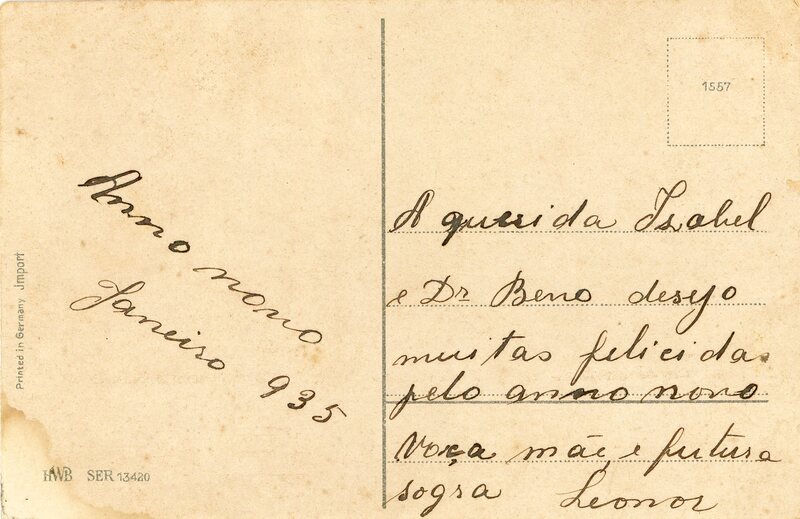 Anno novo
Janeiro 935
Printed in Germany Jmport
HWB SER 13420
1557
A querida Izabel
e Dr. Beno desejo
muitas felicidas
pelo anno novo
Voça mãe e futura
sogra Leonor